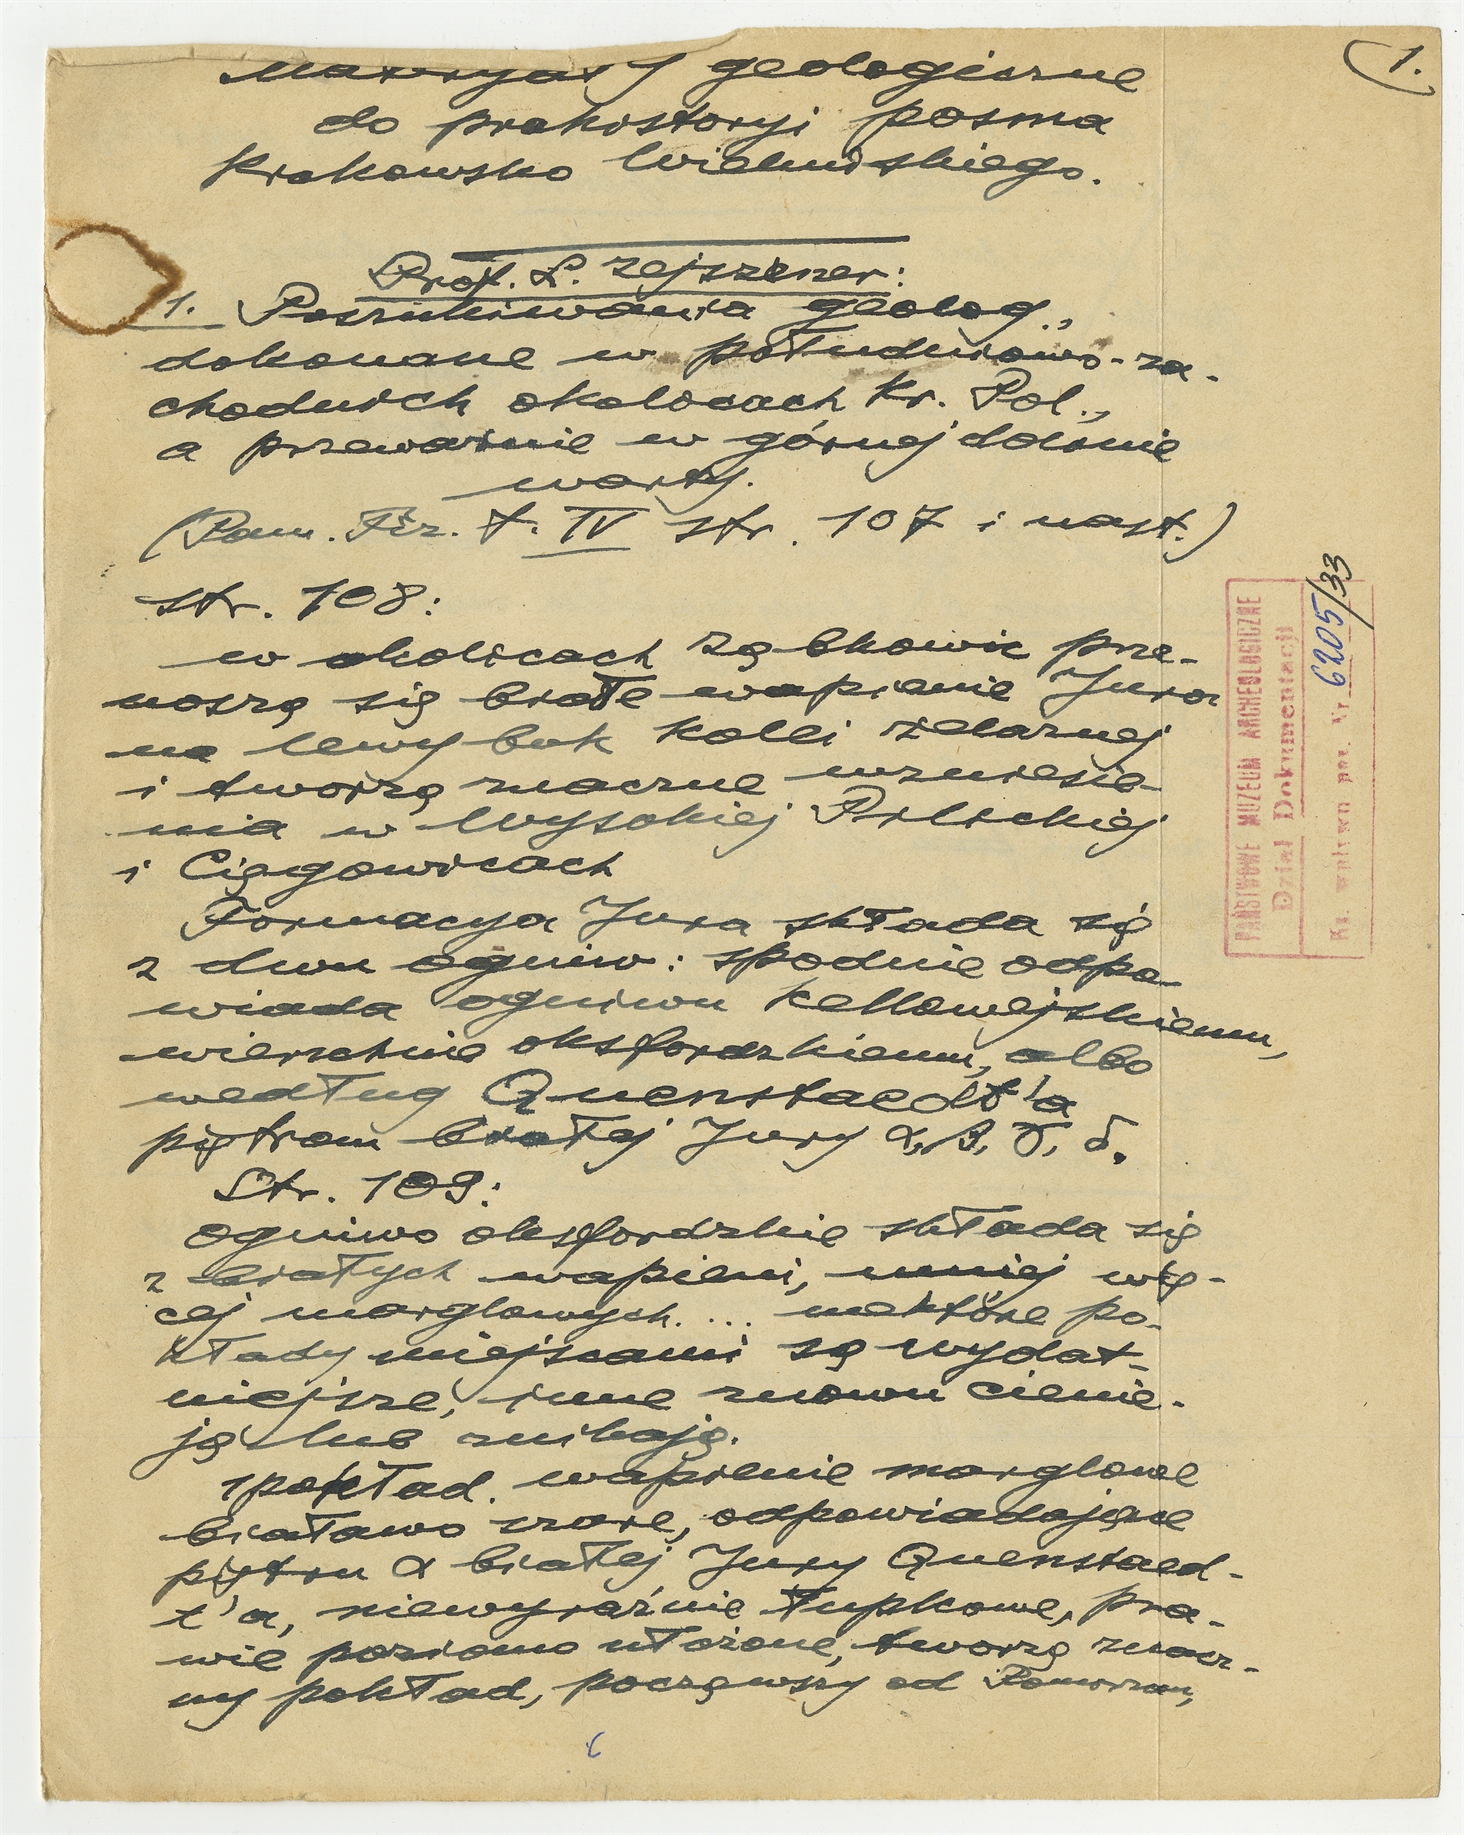 1.
Materyały geologiczne
do prahistoryi pasma
Krakowsko Wieluńskiego.
Prof. L. Zejszner:
1. Poszukiwania geolog.,
dokonane w południowo-za-
chodnich okolicach Kr. Pol.,
a przeważnie w górnej dolinie
warty.
(Pam. Fiz. t. IV str. 107 i nast.)
str. 108:
w okolicach Ząbkowic prze-
noszą się białe wapienie Jura
na lewy bok kolei żelaznej
i tworzą znaczne wzniesie-
nia w Wysokiej Pilickiej
i Ciągowicach
Formacya Jura składa się
z dwu ogniw: spodnie odpo-
wiada ogniwu Kellowejskiemu,
wierzchnie oksfordzkiemu, albo
według Quenstaedt'a
piętrom białej Jury α, β, γ, δ.
Str. 109:
ogniwo oksfordzkie składa się
z białych wapieni, mniej wię-
cej marglowych.... niektóre po-
kłady miejscami są wydat-
niejsze, inne znowu cienie-
ją lub znikają.
1 pokład. wapienie marglowe
białawo szare, odpowiadające
piętru α białej Jury Quenstaed-
t'a, niewyraźnie łupkowe, pra-
wie poziomo ułożone, tworzą znacz-
ny pokład, począwszy od Pomorzan,
PAŃSTWOWE MUZEUM ARCHEOLOGICZNE
Dział Dokumentacji
Ks. wpływu poz. Nr. 6205/33